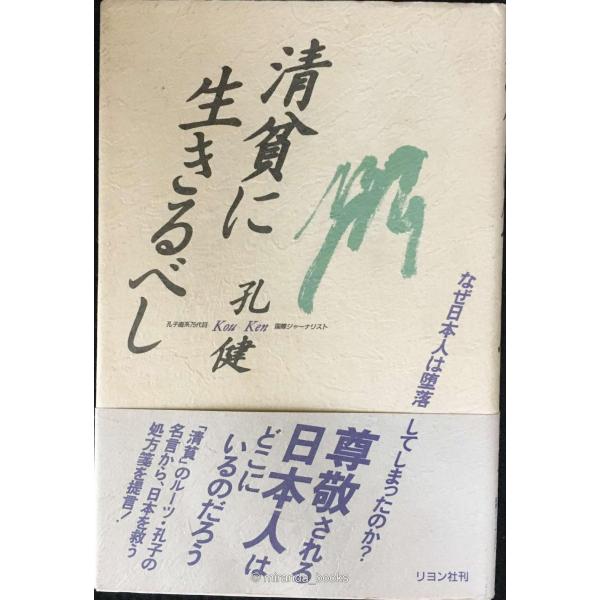 清貧に
生きるべし
孔子直系75代目
孔
健
Kou Ken
国際ジャーナリスト
なぜ日本人は堕落してしまったのか?
尊敬される
日本人は
どこに
いるのだろう
「清貧」のルーツ・孔子の
名言から、日本を救う
処方箋を提言!
リヨン社刊
© miranda_books